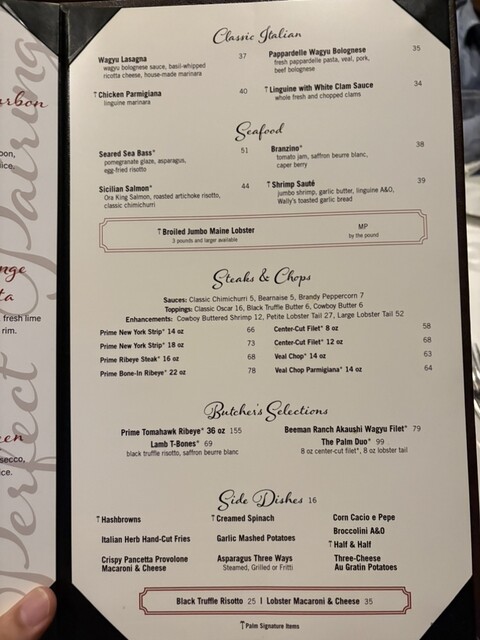 Perfect Pairing
rbon
on,
ice.
nge
ta
fresh lime
rim.
en
secco,
ice.
Classic Italian
Wagyu Lasagna 37
wagyu bolognese sauce, basil-whipped
ricotta cheese, house-made marinara
Chicken Parmigiana 40
linguine marinara
Pappardelle Wagyu Bolognese 35
fresh pappardelle pasta, veal, pork,
beef bolognese
Linguine with White Clam Sauce 34
whole fresh and chopped clams
Seafood
Seared Sea Bass* 51
pomegranate glaze, asparagus,
egg-fried risotto
Sicilian Salmon* 44
Ora King Salmon, roasted artichoke risotto,
classic chimichurri
Branzino* 38
tomato jam, saffron beurre blanc,
caper berry
Shrimp Sauté 39
jumbo shrimp, garlic butter, linguine A&O,
Wally's toasted garlic bread
Broiled Jumbo Maine Lobster MP
3 pounds and larger available by the pound
Steaks & Chops
Sauces: Classic Chimichurri 5, Bearnaise 5, Brandy Peppercorn 7
Toppings: Classic Oscar 16, Black Truffle Butter 6, Cowboy Butter 6
Enhancements: Cowboy Buttered Shrimp 12, Petite Lobster Tail 27, Large Lobster Tail 52
Prime New York Strip* 14 oz 66
Prime New York Strip* 18 oz 73
Prime Ribeye Steak* 16 oz 68
Prime Bone-In Ribeye* 22 oz 78
Center-Cut Filet* 8 oz 58
Center-Cut Filet* 12 oz 68
Veal Chop* 14 oz 63
Veal Chop Parmigiana* 14 oz 64
Butcher's Selections
Prime Tomahawk Ribeye* 36 oz 155
Lamb T-Bones* 69
black truffle risotto, saffron beurre blanc
Beeman Ranch Akaushi Wagyu Filet* 79
The Palm Duo* 99
8 oz center-cut filet*, 8 oz lobster tail
Side Dishes 16
Hashbrowns
Italian Herb Hand-Cut Fries
Crispy Pancetta Provolone
Macaroni & Cheese
Creamed Spinach
Garlic Mashed Potatoes
Asparagus Three Ways
Steamed, Grilled or Fritti
Corn Cacio e Pepe
Broccolini A&O
Half & Half
Three-Cheese
Au Gratin Potatoes
Black Truffle Risotto 25 | Lobster Macaroni & Cheese 35
Palm Signature Items